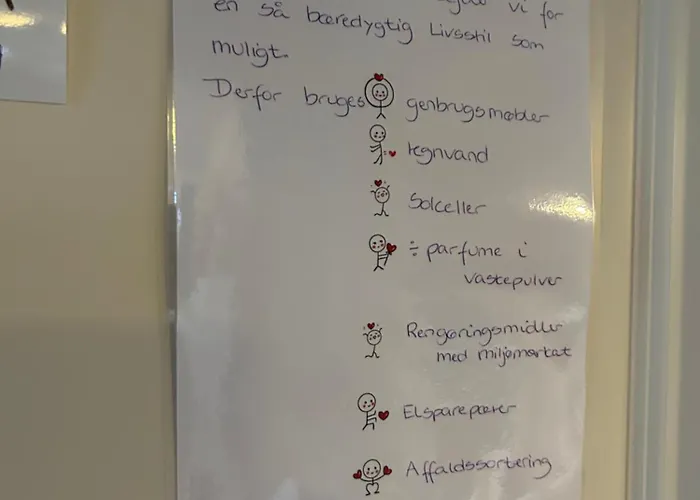 en så bæredygtig Livsstil som
vi for
muligt.
Derfor bruges genbrugsmøbler
regnvand
Solceller
÷ parfume i
vaskepulver
Rengøringsmidler
med miljømærkat
Elsparepærer
Affaldssortering